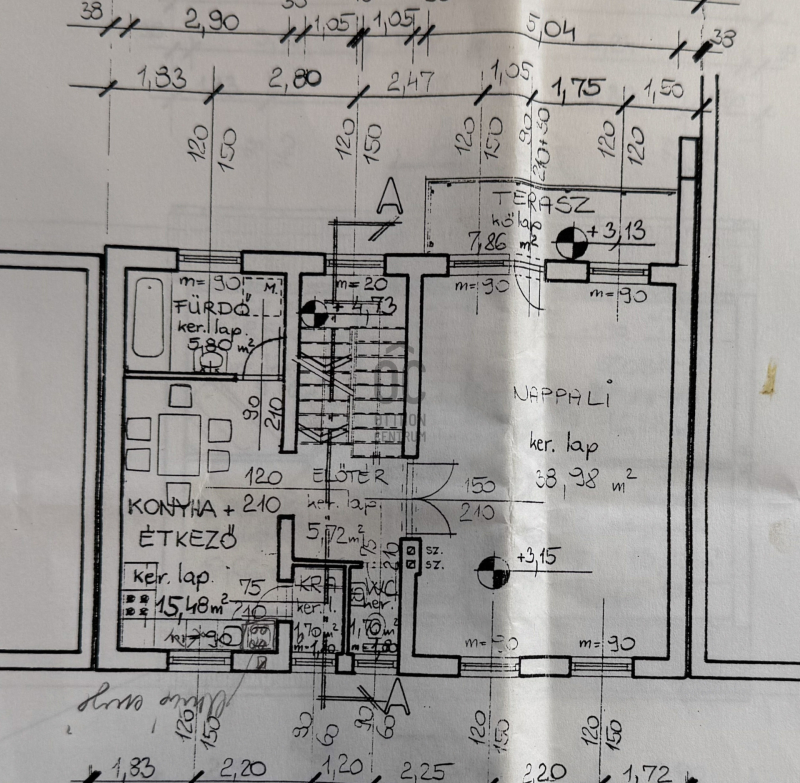 38
2,90
1,05
1,05
5,04
38
1,83
2,80
2,47
1,05
1,75
1,50
120
150
120
150
120
150
90
210+50
120
120
A
TERASZ
kő lap
7,86 m²
+3,13
m=90
m=20
m=90
m=90
M.
FÜRDŐ
ker. lap
5,80 m²
+4,73
90
210
ŐC
OTTHON
CENTRUM
NAPPALI
ker. lap
38,98 m²
120
210
ELŐTÉR
ker. lap
5,72 m²
150
210
KONYHA +
ÉTKEZŐ
ker. lap.
15,48 m²
75
210
75
210
sz.
sz.
+3,15
WC
ker.
1,70 m²
1,70 m²
90
m=90
m=90
A
120
150
90
60
90
60
120
150
120
150
1,83
2,20
1,20
2,25
2,20
1,72